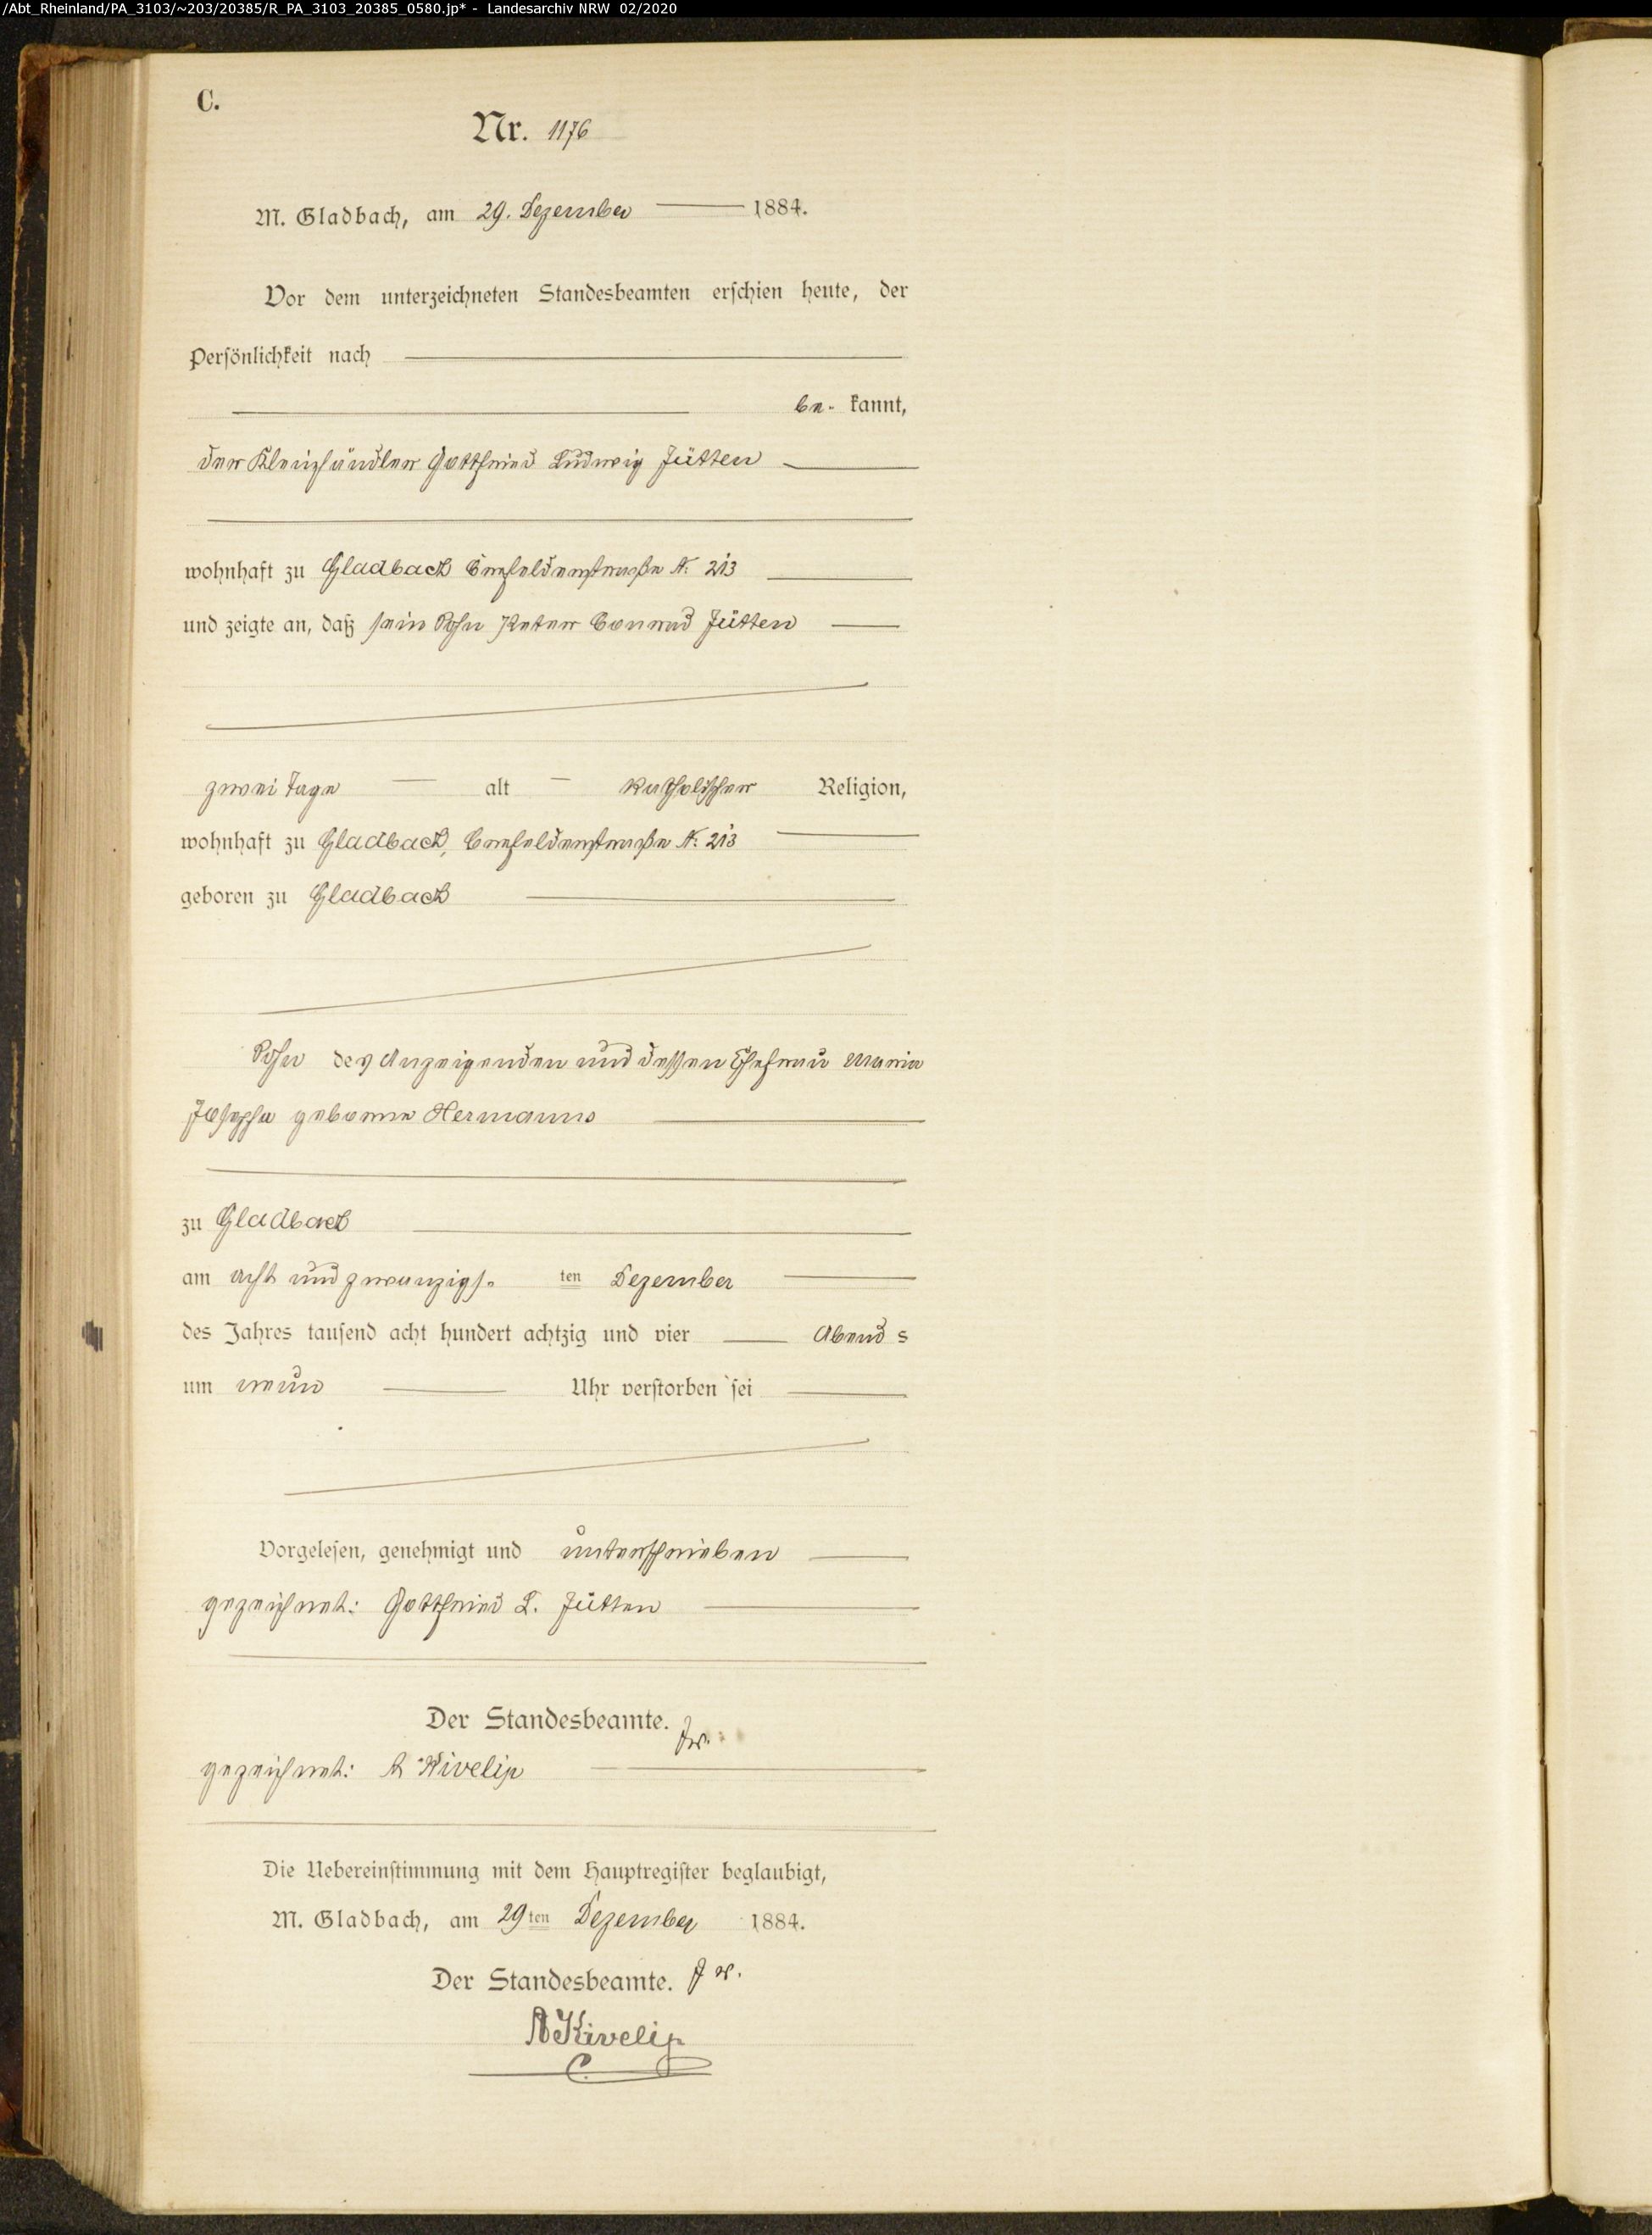 /Abt_Rheinland/PA_3103/~203/20385/R_PA_3103_20385_0580.jp* - Landesarchiv NRW 02/2020
C.
Nr. 1176
M. Gladbach, am 29. Dezember 1884.
Vor dem unterzeichneten Standesbeamten erschien heute, der
Persönlichkeit nach
be- kannt,
der Kleinhändler Gottfried Ludwig Jütten
wohnhaft zu Gladbach Crefelderstraße N. 213
und zeigte an, daß sein Sohn Peter Conrad Jütten
zwei Tage alt katholischer Religion,
wohnhaft zu Gladbach, Crefelderstraße N. 213
geboren zu Gladbach
Sohn des Anzeigenden und dessen Ehefrau Maria
Josepha geborene Hermanns
zu Gladbach
am acht und zwanzigs- ten Dezember
des Jahres tausend acht hundert achtzig und vier Abend s
um neun Uhr verstorben sei
Vorgelesen, genehmigt und unterschrieben
gezeichnet: Gottfried L. Jütten
Der Standesbeamte.
gezeichnet: A Kivelip
Die Uebereinstimmung mit dem Hauptregister beglaubigt,
M. Gladbach, am 29ten Dezember 1884.
Der Standesbeamte.
A Kivelip